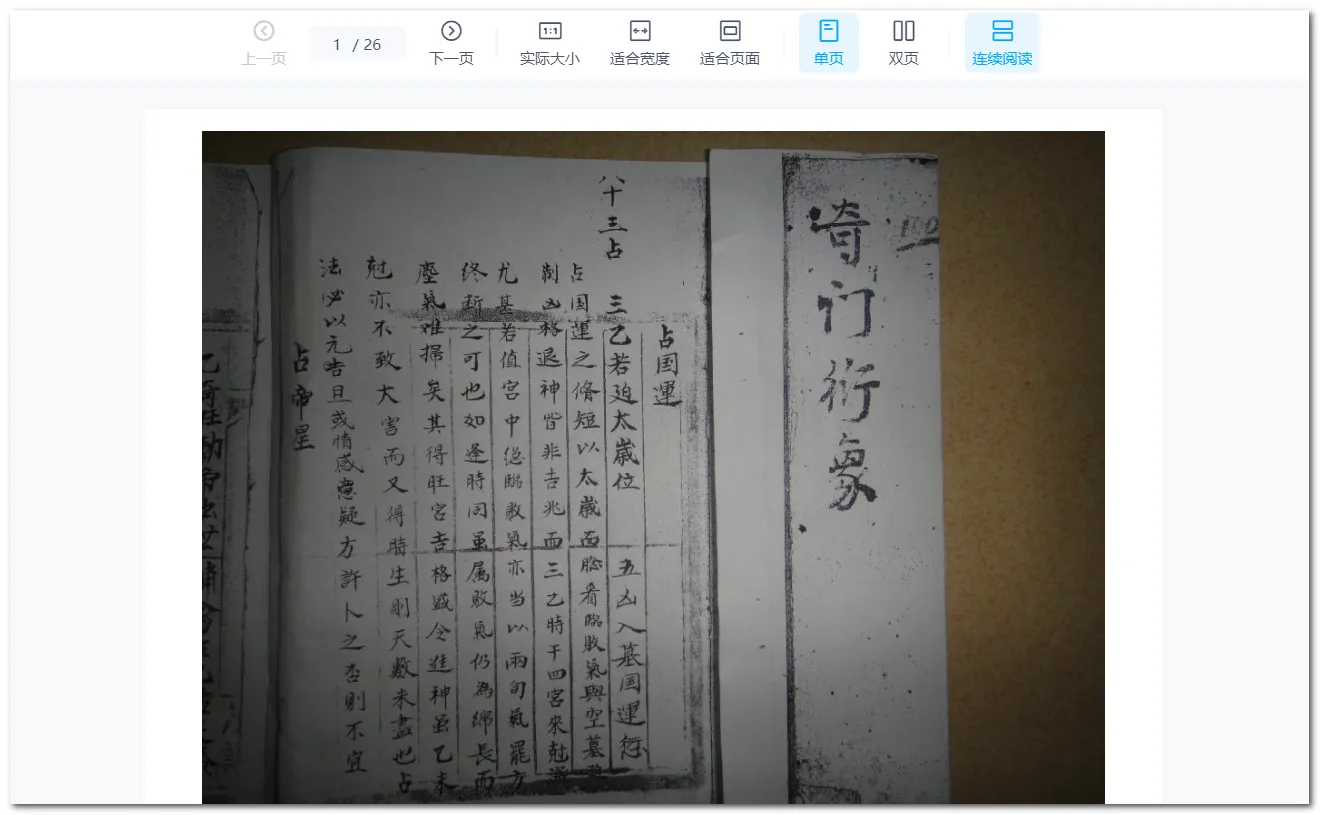 上一页
1 / 26
下一页
实际大小
适合宽度
适合页面
单页
双页
连续阅读
奇门衍象
八十三占
占国運
三乙若廹太歲位 五凶入墓国運
占国運之脩短以太歲為臨看臨敗氣與空墓
制凶格退神皆非吉兆而三乙時干四宮來尅
尤甚若值宮中總臨敗氣亦当以兩旬氣罷方
终断之可也如逢時囘虽属敗氣仍為绵長而
塵氣难掃矣其得旺宮吉格盛令進神虽乙未
尅亦不致大害而又得時生則天數未盡也占
法必以元吉旦或情感意疑方許卜之否則不宜
占帝星